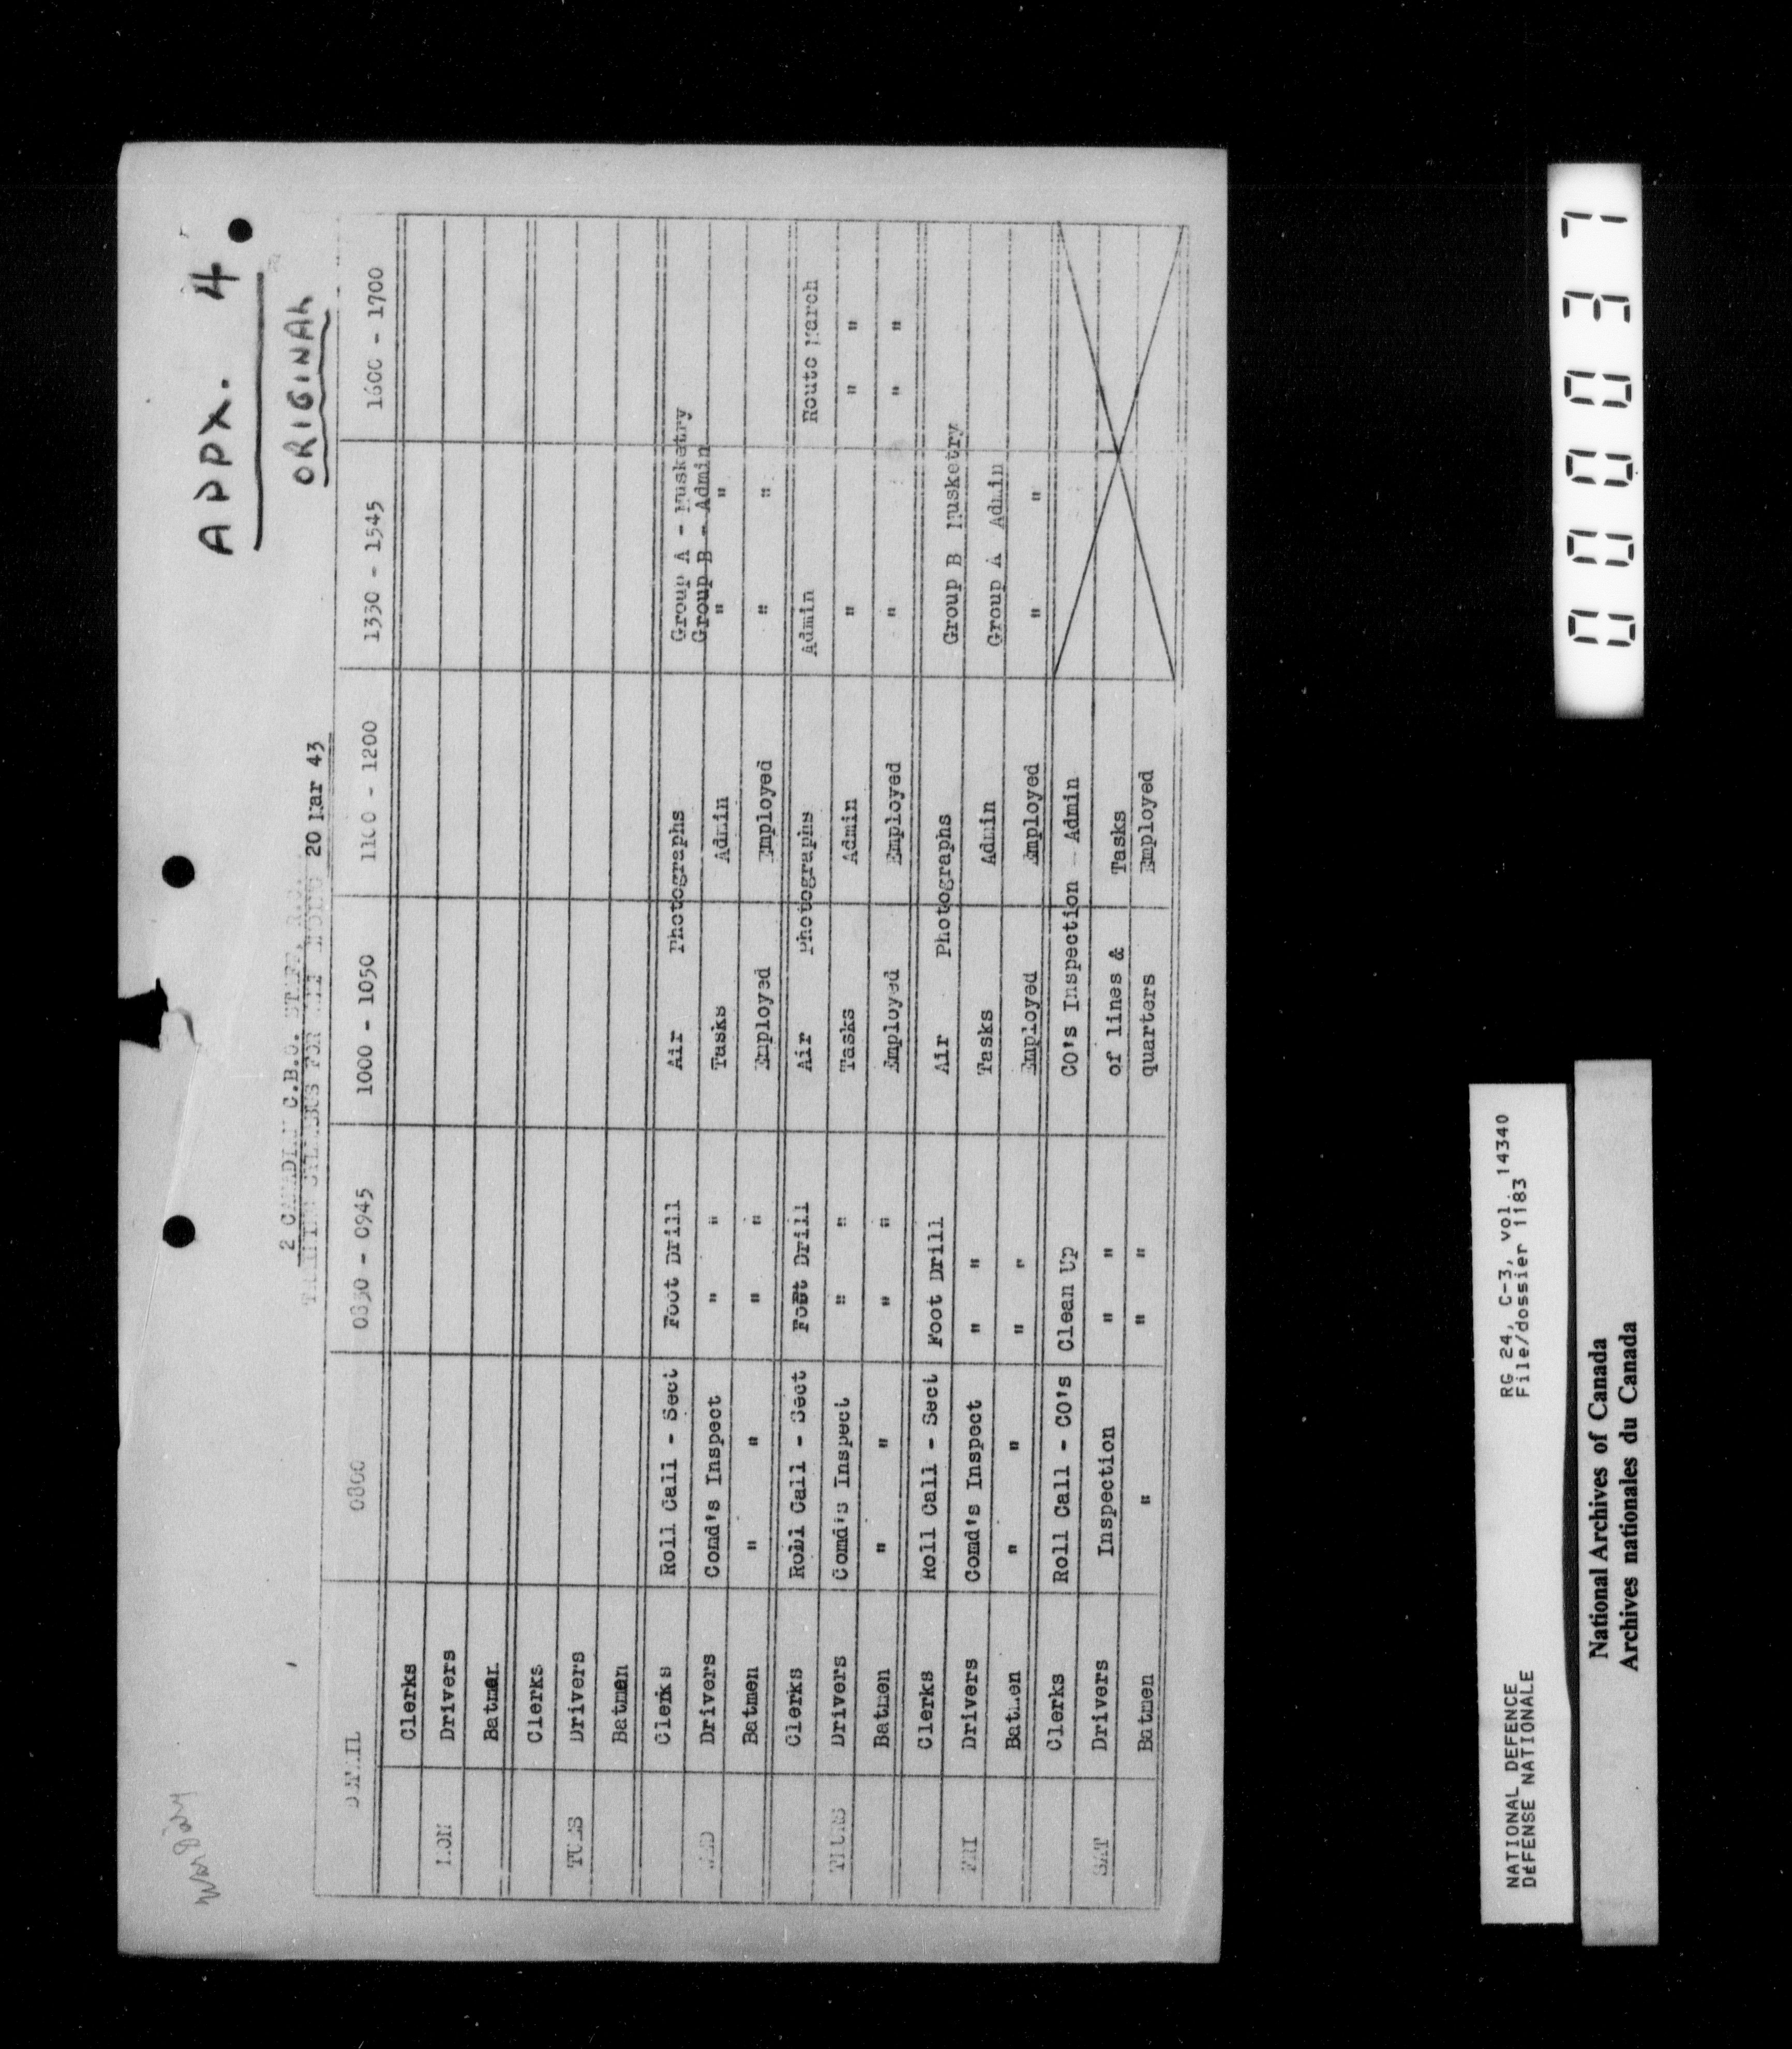 War Diary
APPX. 4.
ORIGINAL
2 CANADIAN C.B.O. STAFF, RCA
TRAINING SYLLABUS FOR 20 Mar 43
DETAIL 0800 0830 - 0945 1000 - 1050 1100 - 1200 1330 - 1545 1600 - 1700
Clerks
MON Drivers
Batmen
Clerks
TUES Drivers
Batmen
Clerks Roll Call - Sect Foot Drill Air Photographs Group A - Musketry
Group B - Admin
WED Drivers Comd's Inspect " " Tasks Admin " "
Batmen " " " " Employed Employed " "
Clerks Roll Call - Sect Foot Drill Air Photographs Admin Route March
THURS Drivers Comd's Inspect " " Tasks Admin " " "
Batmen " " " " Employed Employed " " "
Clerks Roll Call - Sect Foot Drill Air Photographs Group B Musketry
FRI Drivers Comd's Inspect " " Tasks Admin Group A Admin
Batmen " " " " Employed Employed " "
Clerks Roll Call - CO's Clean Up CO's Inspection - Admin
SAT Drivers Inspection " " of lines & Tasks
Batmen " " " quarters Employed
000037
NATIONAL DEFENCE RG 24, C-3, vol. 14340
DÉFENSE NATIONALE File/dossier 1183
National Archives of Canada
Archives nationales du Canada